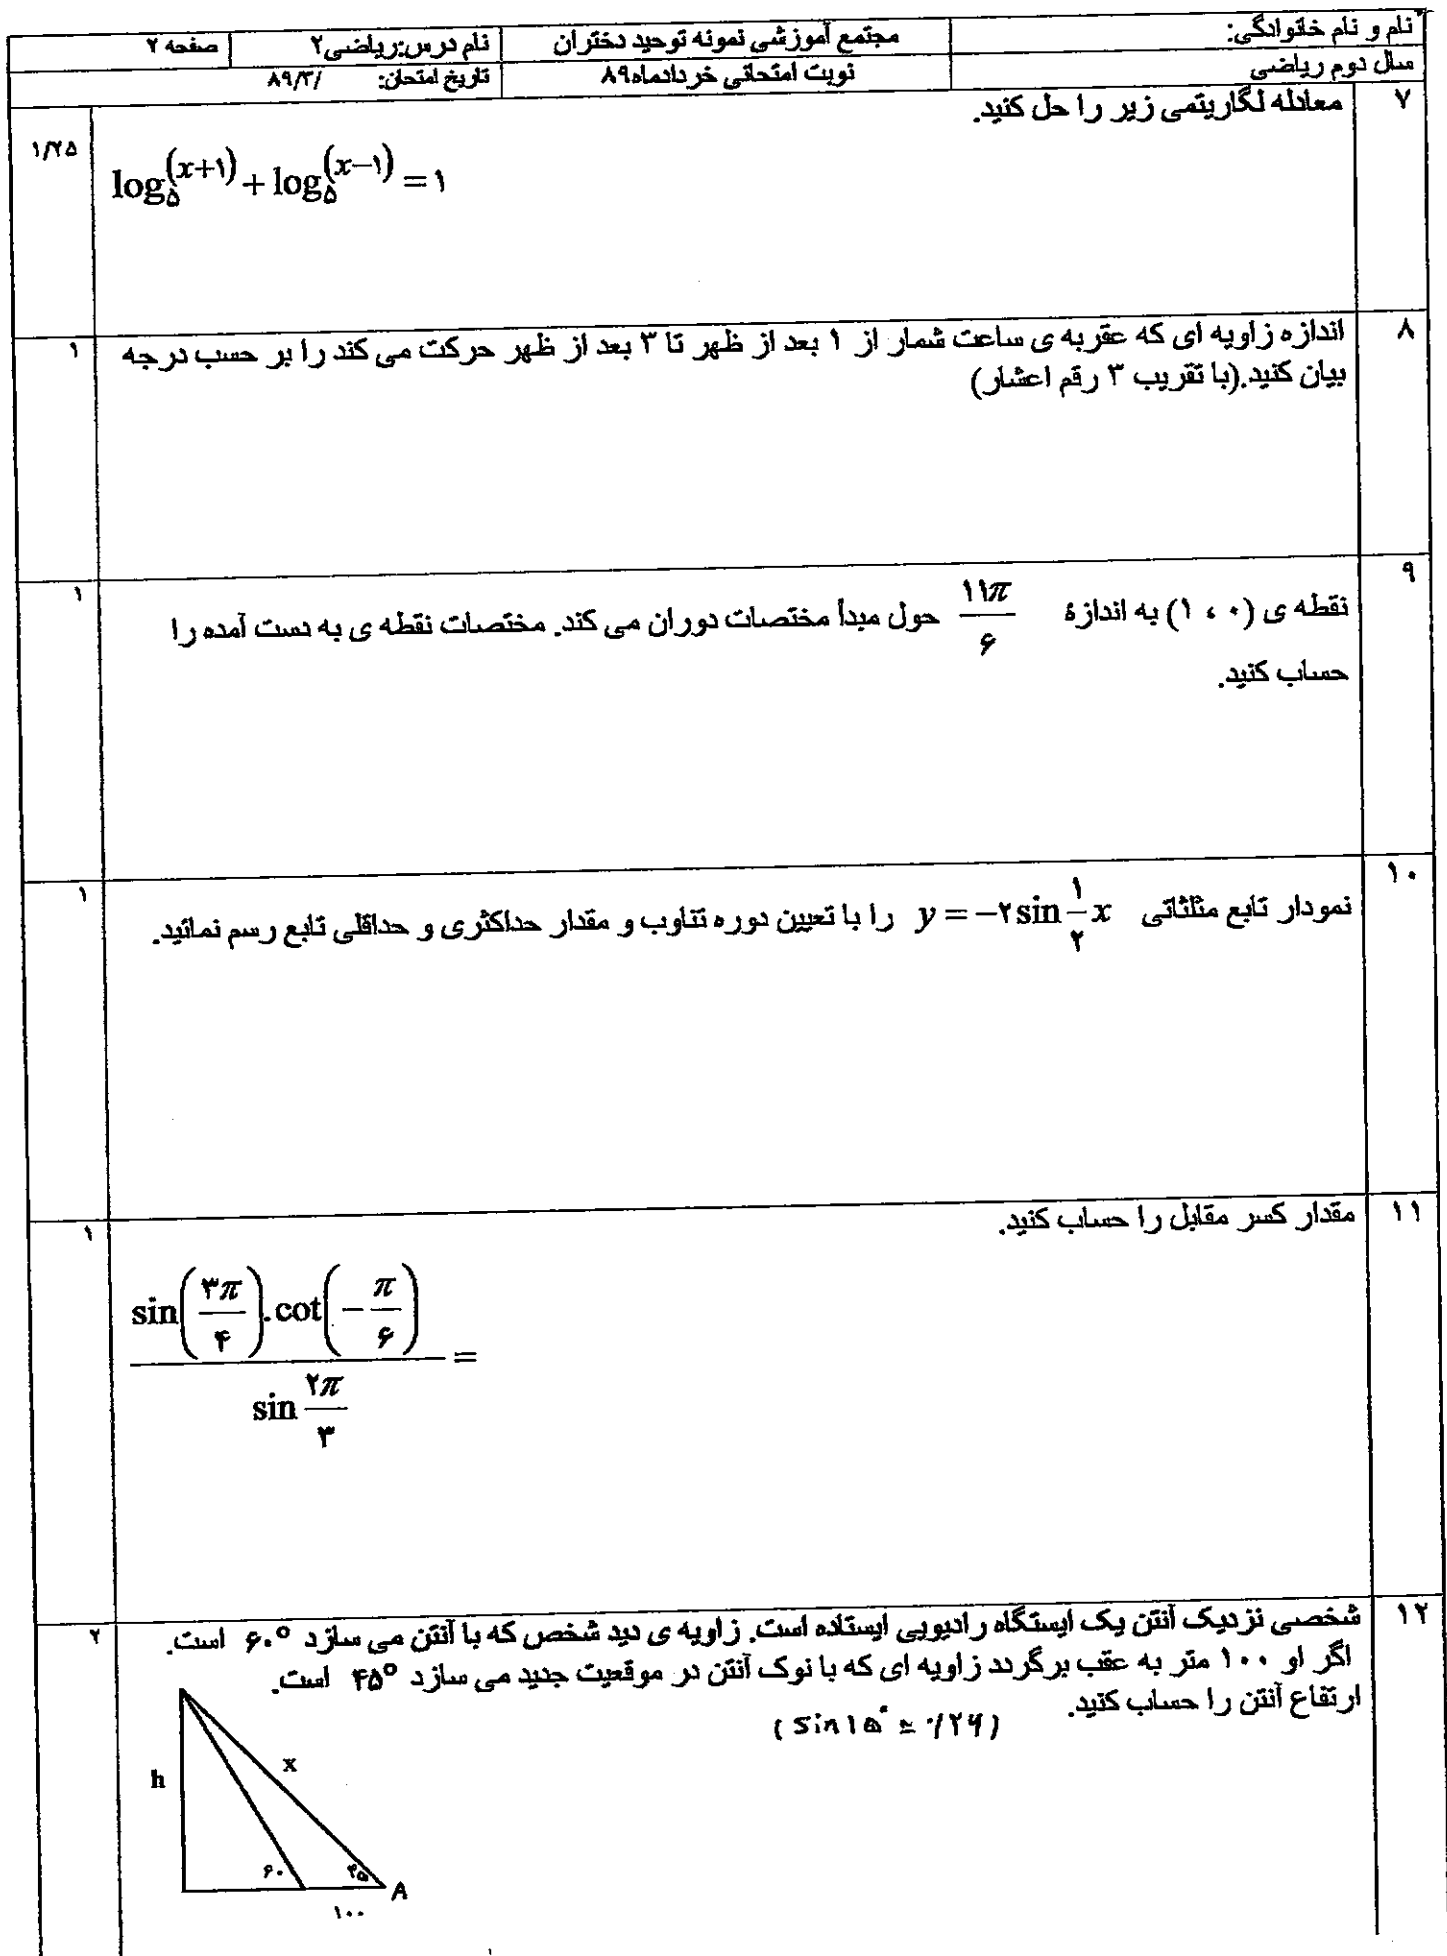 نام و نام خانوادگی:
مجتمع آموزشی نمونه توحید دختران
نام درس:ریاضی۲
صفحه ۲
سال دوم ریاضی
نوبت امتحانی خردادماه۸۹
تاریخ امتحان: /۸۹/۳
۷
معادله لگاریتمی زیر را حل کنید.
۱/۲۵
log₅^(x+۱) + log₅^(x−۱) = ۱
۸
اندازه زاویه ای که عقربه ی ساعت شمار از ۱ بعد از ظهر تا ۳ بعد از ظهر حرکت می کند را بر حسب درجه
۱
بیان کنید.(با تقریب ۳ رقم اعشار)
۹
نقطه ی (۰ ، ۱) به اندازهٔ ۱۱π/۶ حول مبدأ مختصات دوران می کند. مختصات نقطه ی به دست آمده را
۱
حساب کنید.
۱۰
نمودار تابع مثلثاتی y = −۲ sin ۱/۲ x را با تعیین دوره تناوب و مقدار حداکثری و حداقلی تابع رسم نمائید.
۱
۱۱
مقدار کسر مقابل را حساب کنید.
۱
sin(۳π/۴).cot(−π/۶)
=
sin ۲π/۳
۱۲
شخصی نزدیک آنتن یک ایستگاه رادیویی ایستاده است. زاویه ی دید شخص که با آنتن می سازد ۶۰° است.
۲
اگر او ۱۰۰ متر به عقب برگردد زاویه ای که با نوک آنتن در موقعیت جدید می سازد ۴۵° است.
ارتفاع آنتن را حساب کنید.
(sin۱۵° ≃ ۰/۲۶)
h
x
۶۰
۴۵
A
۱۰۰